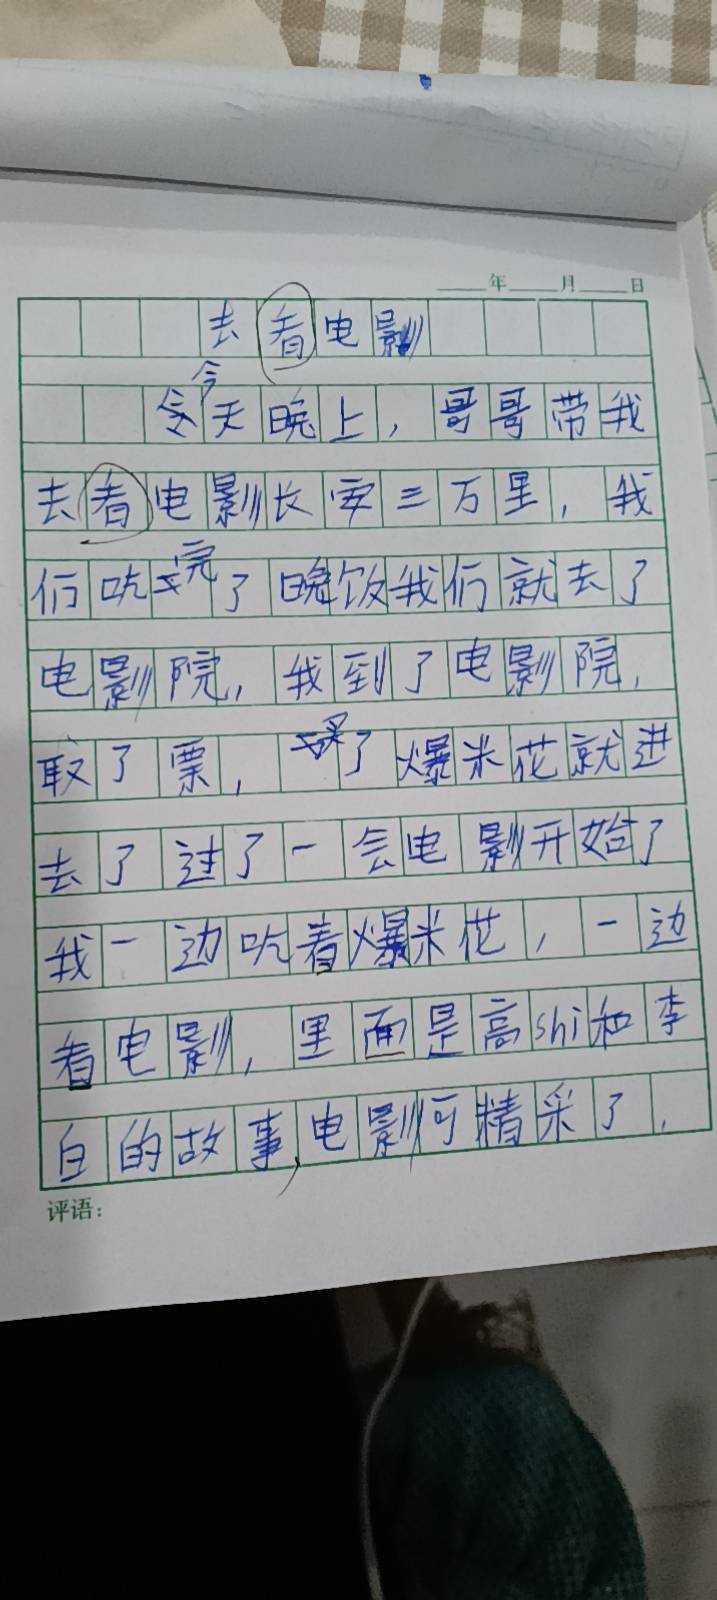 年 月 日
去看电影
今
今天晚上，哥哥带我
去看电影长安三万里，我
们吃完了晚饭我们就去了
电影院，我到了电影院，
取了票，买了爆米花就进
去了过了一会电影开始了
我一边吃着爆米花，一边
看电影，里面是高shi和李
白的故事，电影可精采了，
评语：